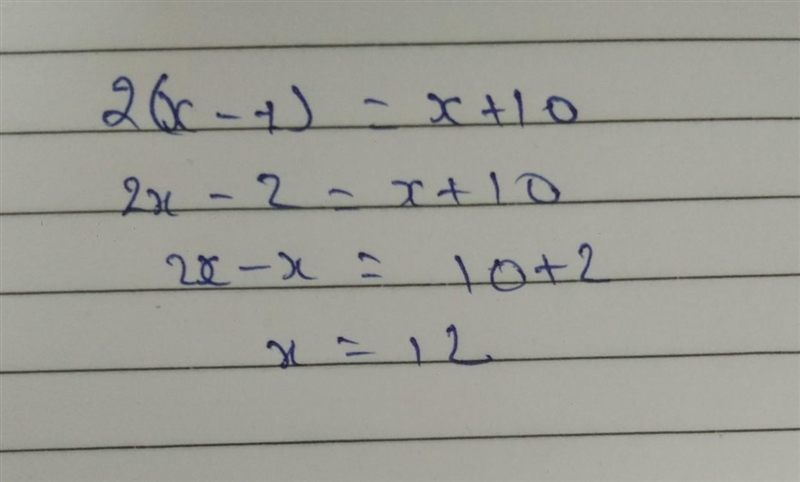 2(x - 1) = x + 10
2x - 2 = x + 10
2x - x = 10 + 2
x = 12